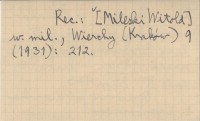 Rec.: "[Mileski Witold]
w. mil., Wierchy (Kraków) 9
(1931): 212.